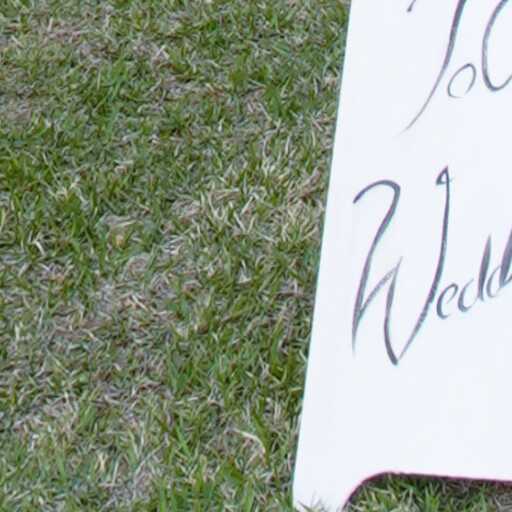 To
Wedd